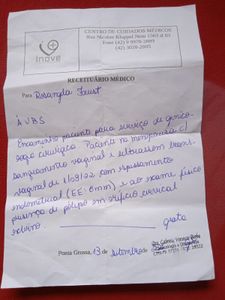 Inove
CENTRO DE CUIDADOS MÉDICOS
Rua Nicolau Kluppel Neto 1563 sl 03
Fone (42) 9 9979-2895
(42) 3028-2895
RECEITUÁRIO MÉDICO
Para Rosangela Faust
À UBS
Encaminho paciente para serviço de gineco-
logia cirúrgica. Paciente na menopausa c/
sangramento vaginal e ultrassom trans-
vaginal de 1/09/22 com espessamento
endometrial (EE: 8mm) e ao exame físico
presença de pólipo em orifício cervical
externo.
Grata
Ponta Grossa, 13 de setembro de